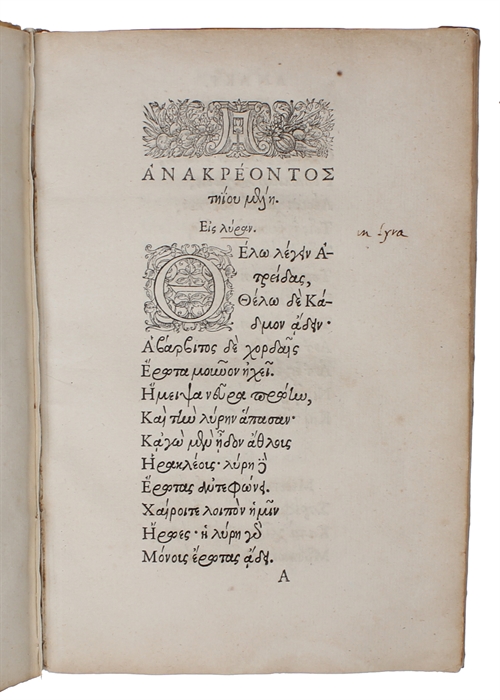 ΑΝΑΚΡΕΌΝΤΟΣ
τηΐου μέλη.
Εἰς λύραν.
in lyra
Θέλω λέγειν Ἀ-
τρείδας,
Θέλω δὲ Κά-
δμον ᾄδειν·
Ἁ βάρβιτος δὲ χορδαῖς
Ἔρωτα μοῦνον ἠχεῖ.
Ἤμειψα νεῦρα πρώην,
Καὶ τὴν λύρην ἅπασαν·
Κᾀγὼ μὲν ᾖδον ἄθλους
Ἡρακλέους· λύρη δὲ
Ἔρωτας ἀντεφώνει.
Χαίροιτε λοιπὸν ἡμῖν
Ἥρωες· ἡ λύρη γὰρ
Μόνους ἔρωτας ᾄδει.
A